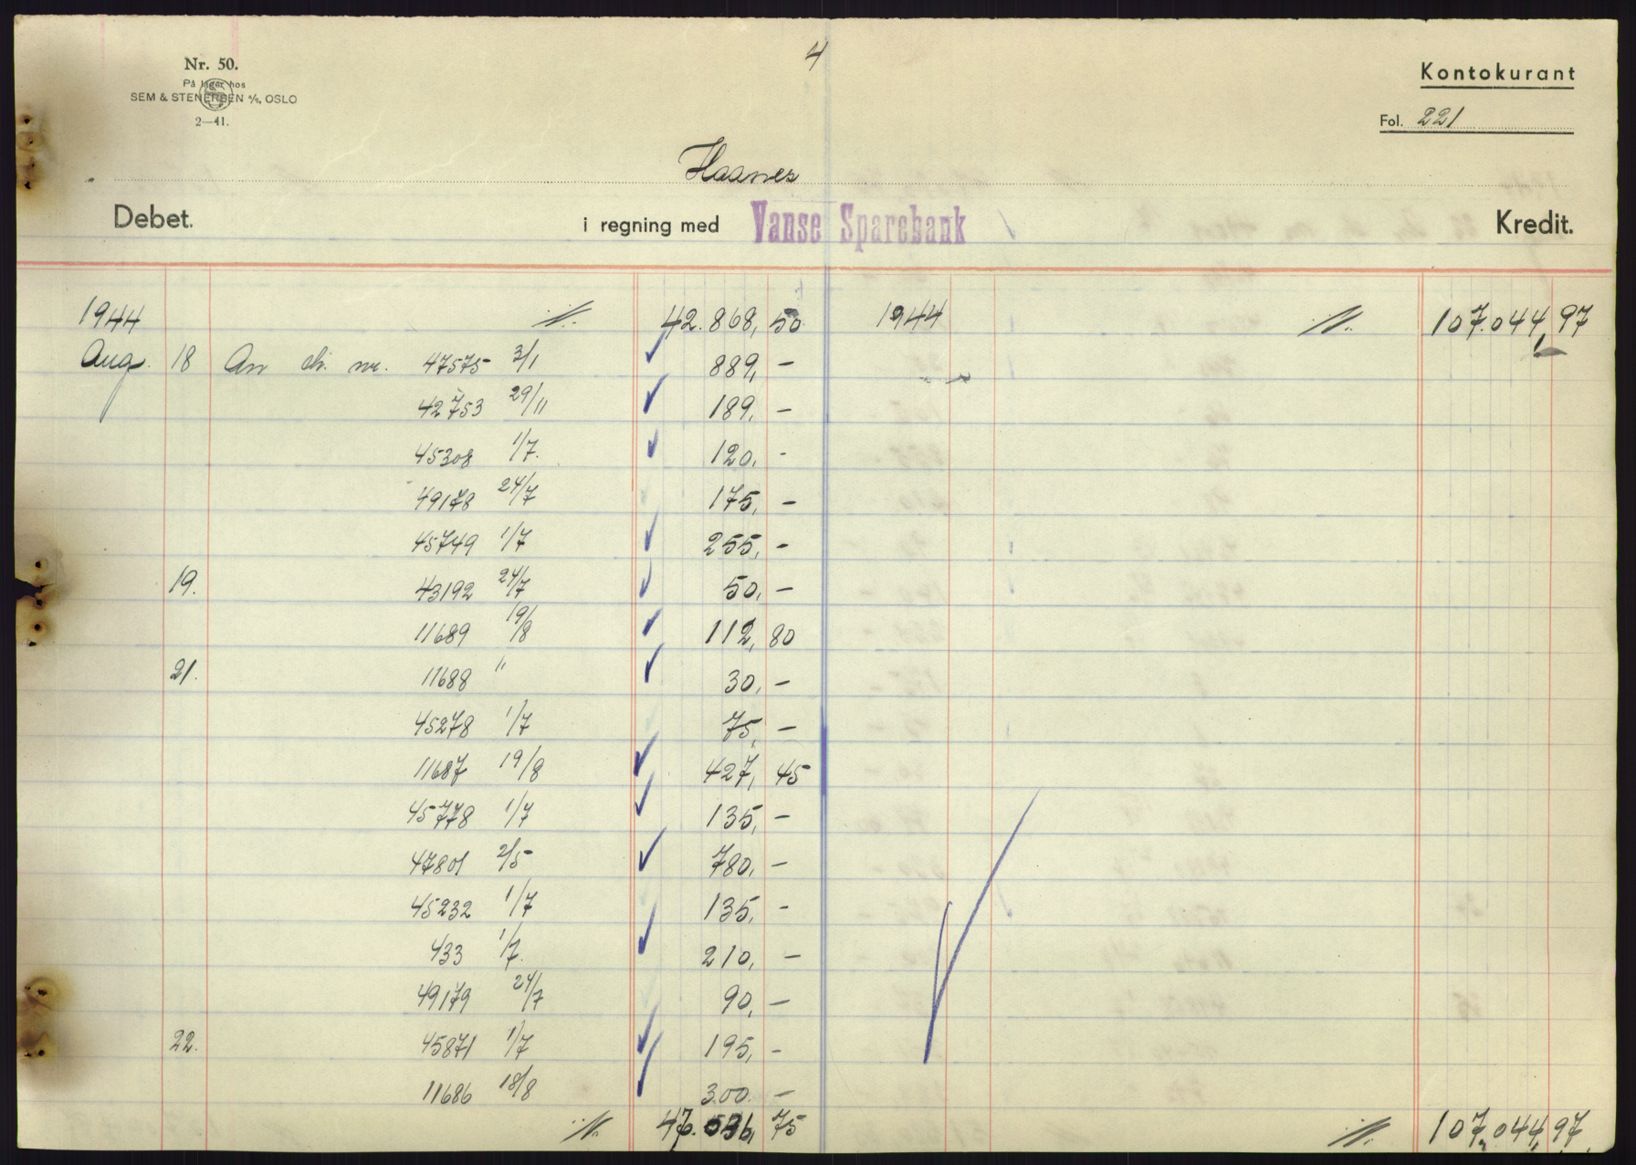 4
Nr. 50.
På lager hos
SEM & STENERSEN A/S, OSLO
2—41.
Kontokurant
Fol. 221
Haanes
Debet. i regning med Vanse Sparebank Kredit.
1944 42.868, 50 1944 107.044, 97
Aug. 18 An ch. nr. 47575 3/1 889, -
42753 29/11 189, -
45308 1/7. 120, -
49178 24/7 175, -
45749 1/7 255, -
19. 43192 24/7 50, -
11689 19/8 112, 80
21. 11688 " 30, -
45278 1/7 75, -
11687 19/8 427, 45
45778 1/7 135, -
47801 2/5 780, -
45232 1/7 135, -
433 1/7. 210, -
49179 24/7 90, -
22. 45871 1/7 195, -
11686 18/8 300. -
47.036, 75 107,044, 97